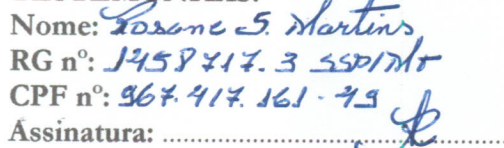 Nome: Rosane S. Martins
RG nº: 1458717.3 SSP/MT
CPF nº: 967.417.161-49
Assinatura: ........................................